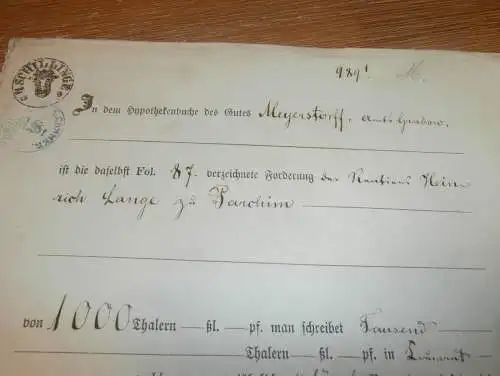 SCHILLINGE
989¹ M.
In dem Hypothekenbuche des Gutes Meyerstorff, Amts Grabow,
ist die daselbst Fol. 87. verzeichnete Forderung des Rentiers Hein
rich Lange zu Parchim
von 1000 Thalern — ßl. — pf. man schreibet Tausend
Thalern — ßl. — pf. in